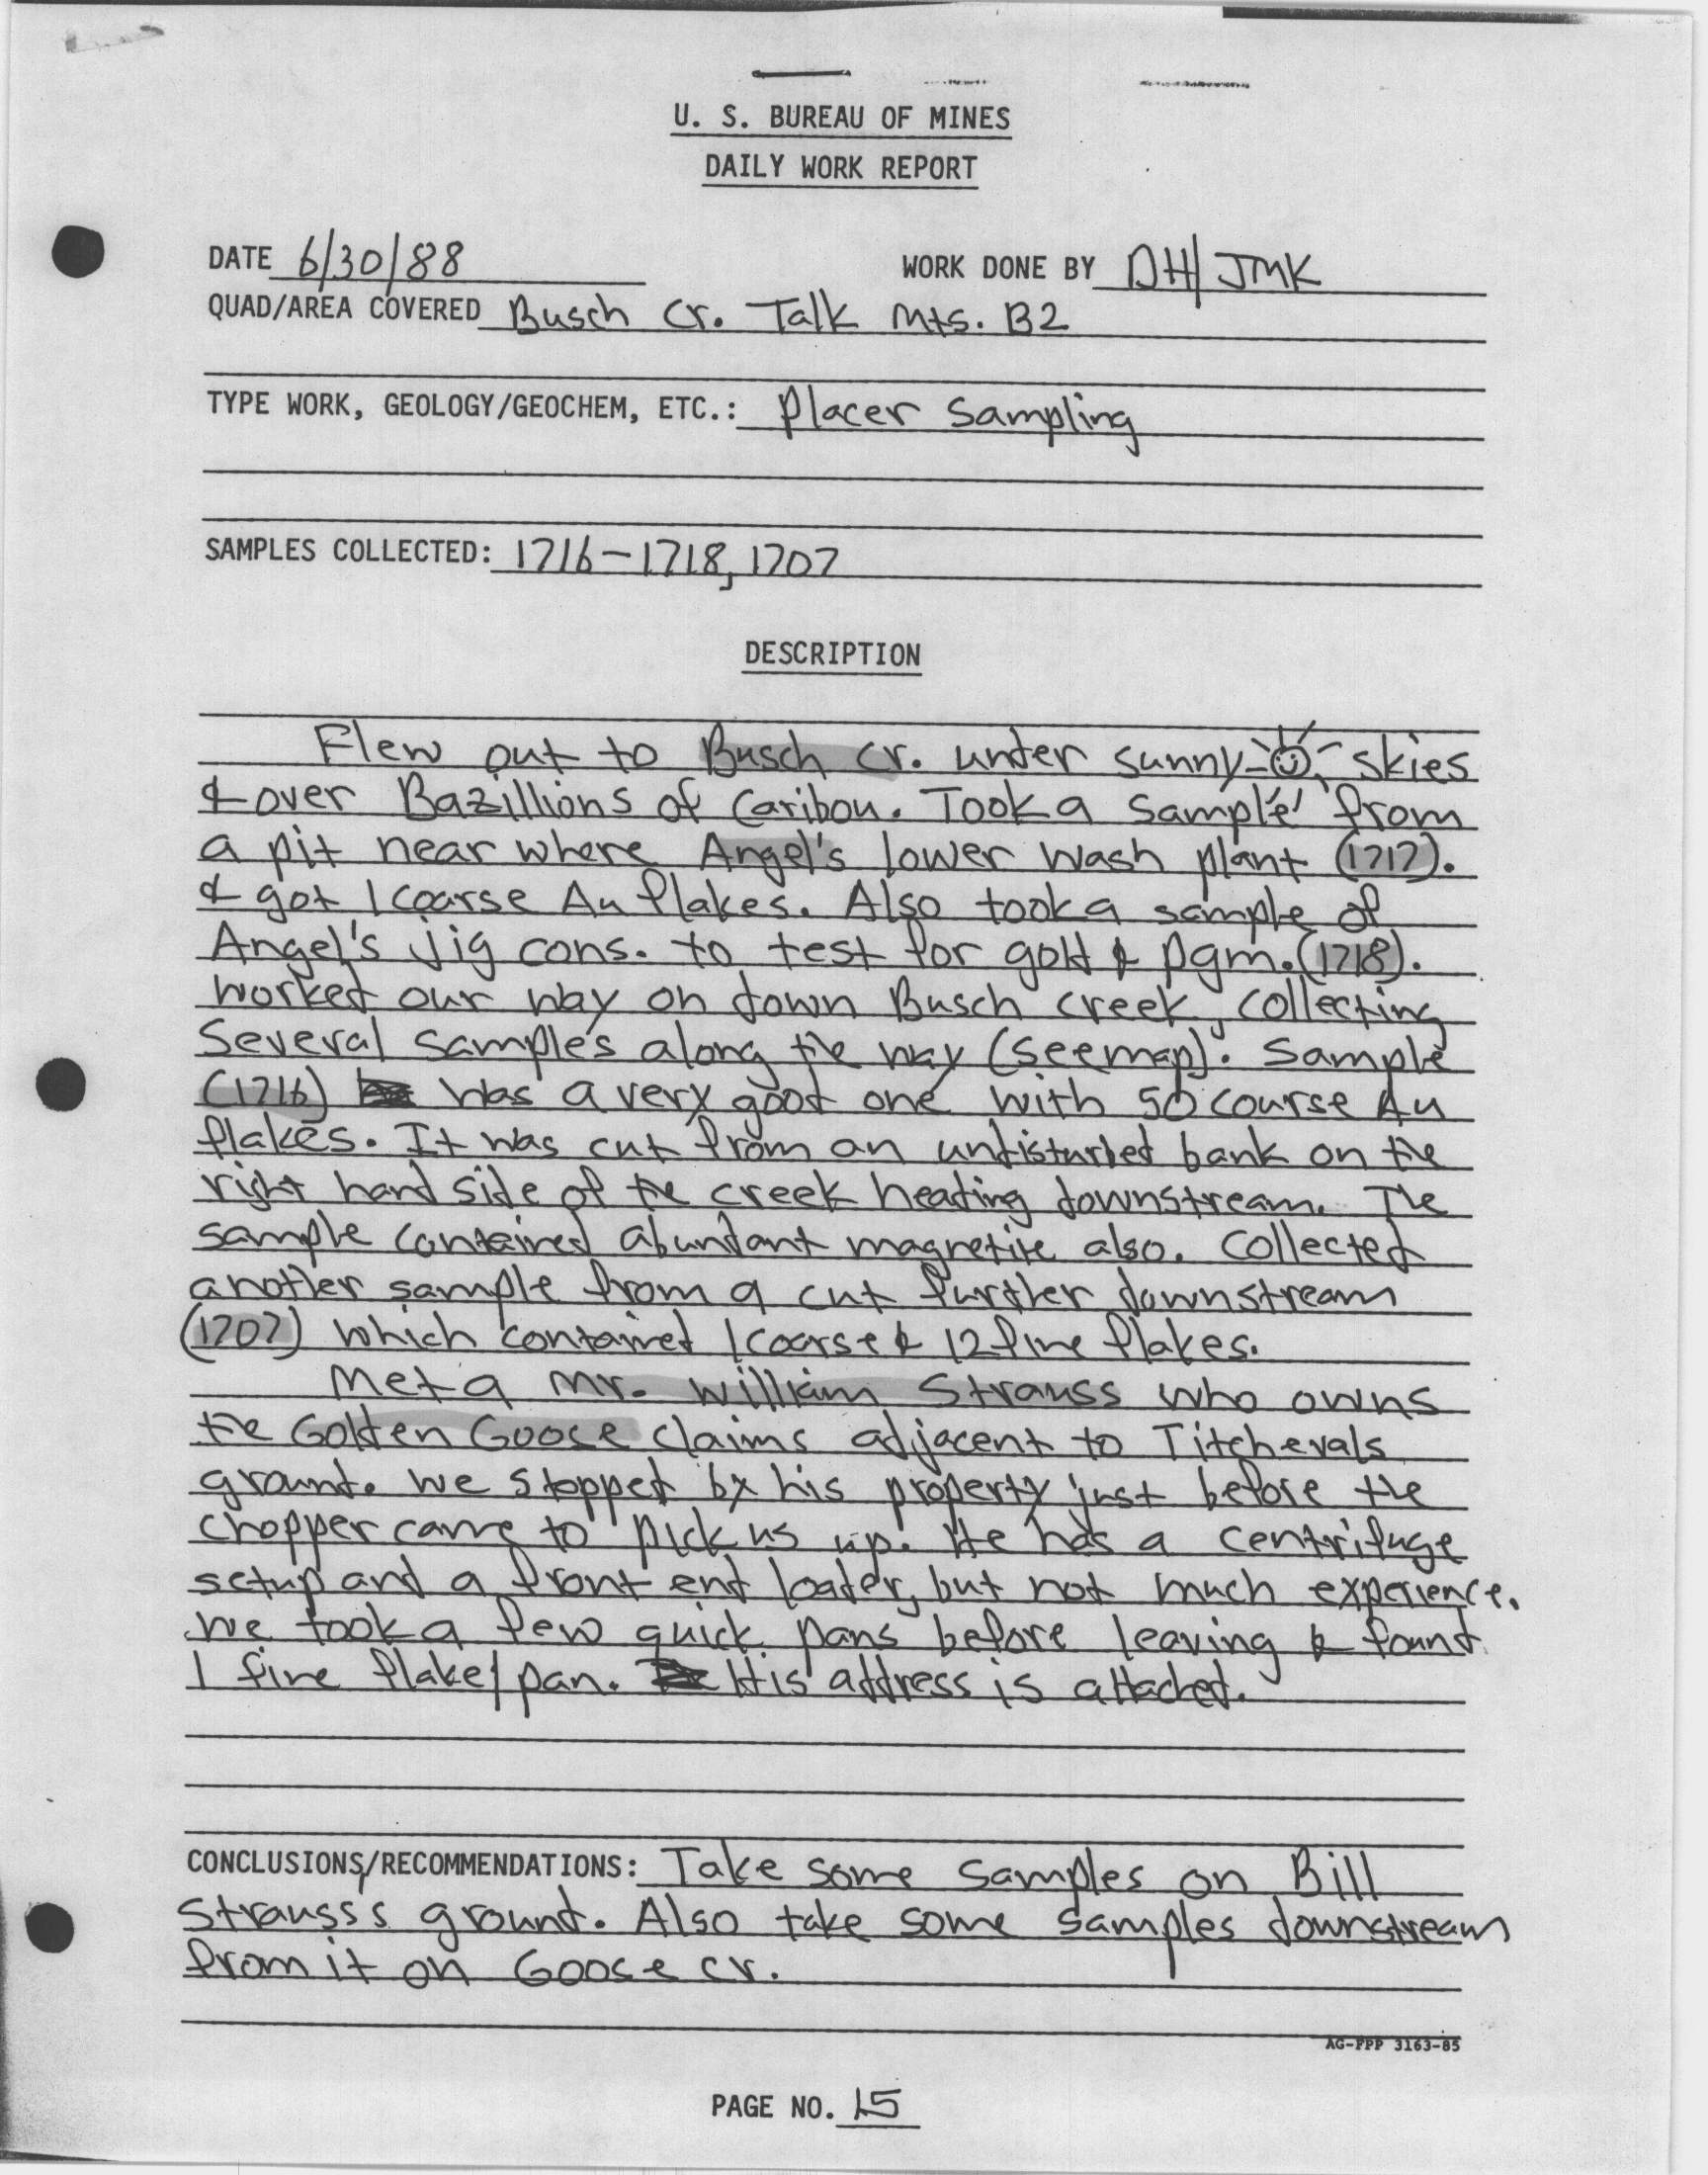 U. S. BUREAU OF MINES
DAILY WORK REPORT
DATE 6/30/88 WORK DONE BY DH/JMK
QUAD/AREA COVERED Busch Cr. Talk Mts. B2
TYPE WORK, GEOLOGY/GEOCHEM, ETC.: Placer Sampling
SAMPLES COLLECTED: 1716-1718, 1707
DESCRIPTION
Flew out to Busch Cr. under sunny skies
& over Bazillions of Caribou. Took a sample from
a pit near where Angel's lower wash plant (1717).
& got 1 coarse Au flakes. Also took a sample of
Angel's jig cons. to test for gold & pgm. (1718).
Worked our way on down Busch Creek, collecting
Several samples along the way (see map). Sample
(1716) was a very good one with 50 course Au
flakes. It was cut from an undisturbed bank on the
right hand side of the creek heading downstream. The
sample contained abundant magnetite also. Collected
another sample from a cut further downstream
(1707) which contained 1 coarse & 12 fine flakes.
Met a Mr. William Strauss who owns
the Golden Goose claims adjacent to Titchevals
ground. We stopped by his property just before the
chopper came to pick us up. He has a centrifuge
setup and a front end loader, but not much experience.
We took a few quick pans before leaving & found
1 fine flake/pan. His address is attached.
CONCLUSIONS/RECOMMENDATIONS: Take some samples on Bill
Strauss's ground. Also take some samples downstream
from it on Goose Cr.
AG-FPP 3163-85
PAGE NO. 15